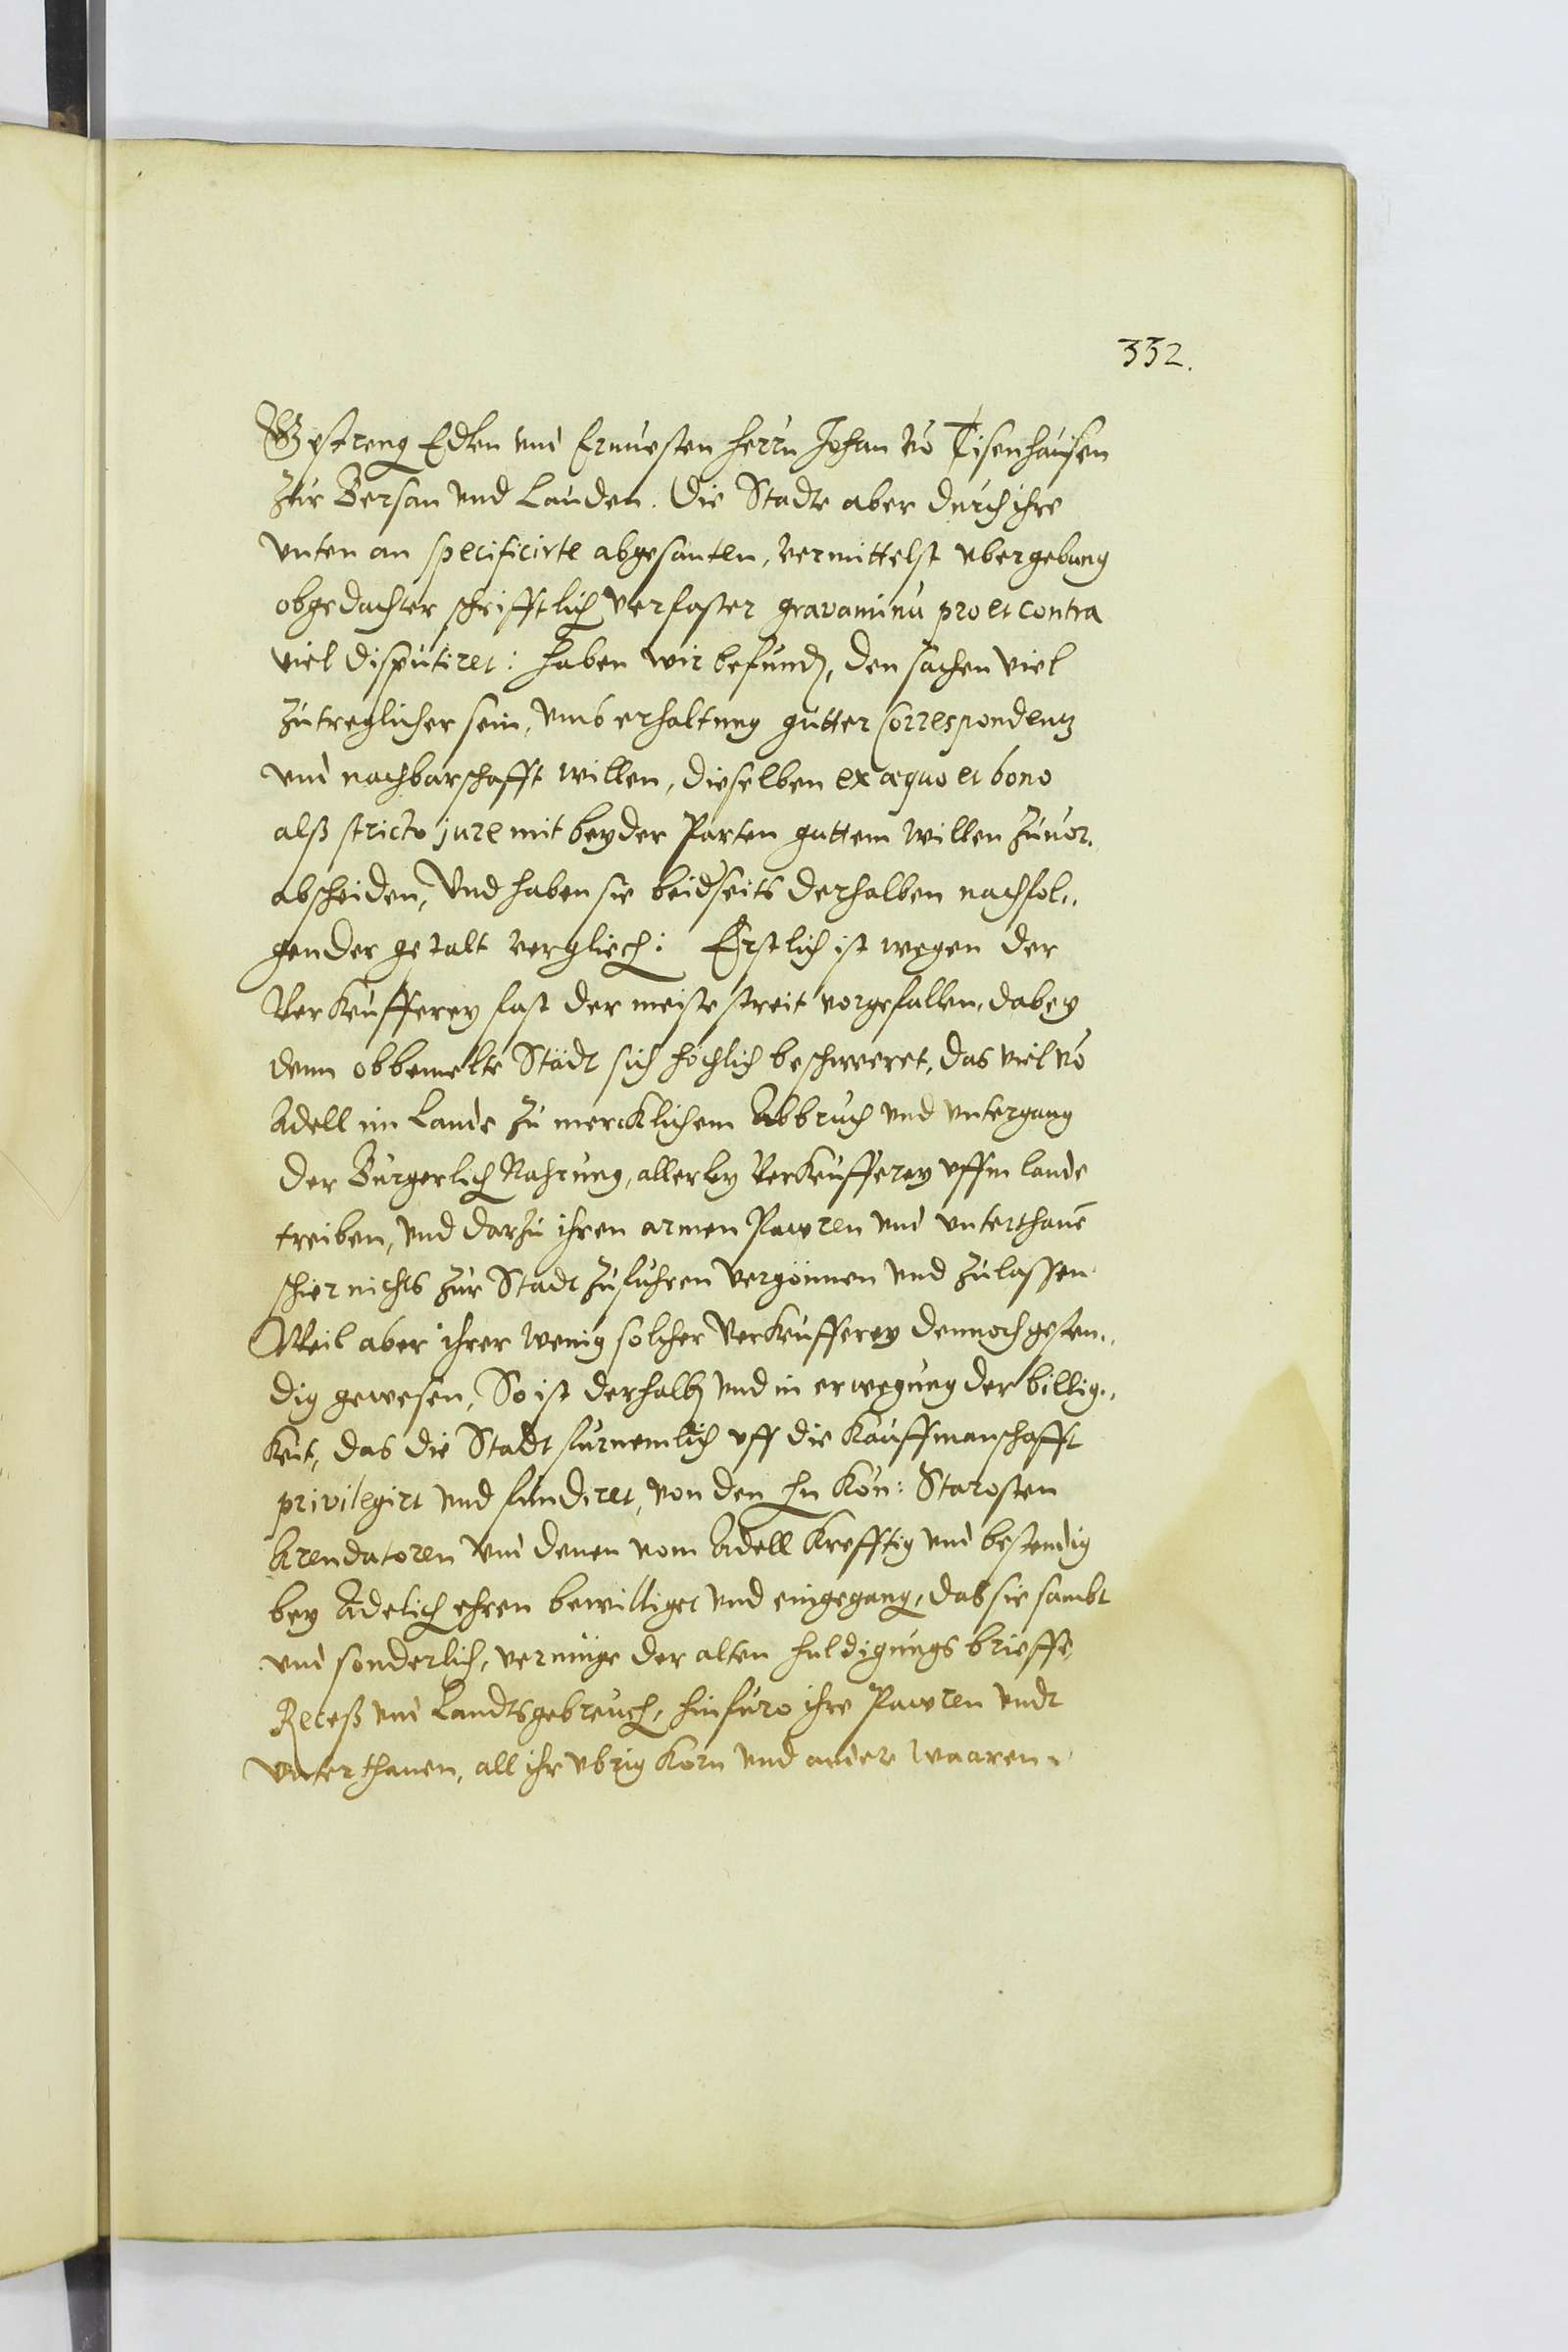 332.
Gestreng Edlen und Ernuesten Herrn Johan vō Tisenhausen
zur Bersan und Lauden. Die Stadte aber durch ihre
unten an specificirte abgesanten, vermittelst ubergebung
obgedachter schrifftlich verfaster gravaminū pro et contra
viel disputiret: haben wir befund, den sachen viel
zutreglicher sein, umb erhaltung gutter Correspondentz
und nachbarschafft willen, dieselben ex æquo et bono
alß stricto jure mit beyder Parten guttem willen zuvor„
abscheiden, Und haben sie beidseits derhalben nachfol„
gender gestalt vergliech: Erstlich ist wegen der
Verkeufferey fast der meiste streit vorgefallen, dabey
denn obbemelte Städt sich höchlich beschweret, das viel vō
Adell im Lande zu mercklichem Abbruch und untergang
der Burgerlich Nahrung, allerley Verkeufferey uffm lande
treiben, und darzu ihren armen Pawren und unterthanē
schier nichts zur Stadt zufuhren vergönnen und zulassen
Weil aber ihrer wenig solcher Verkeufferey dennoch gesten„
dig gewesen, So ist derhalb und in erwegung der billig„
keit, das die Stadt furnemlich uff die Kauffmanschafft
privilegirt und fundiret, von den Hn Kön: Starosten
Arendatoren und denen vom Adell krefftig und bestendig
bey Adelich ehren bewilliget und eingegang, das sie sambt
und sonderlich, vermüge der alten huldigungs brieffe,
Receß und Landtsgebreuch, hinfuro ihre Pawren undt
Unterthanen, all ihr ubrig Korn und ander waaren„